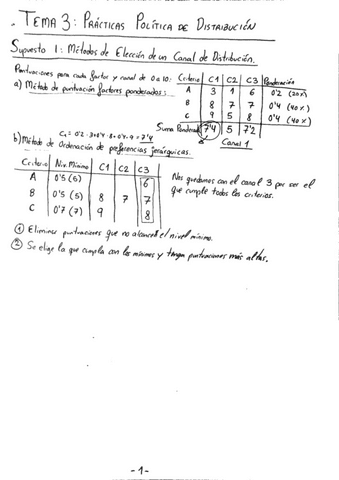 TEMA 3: PRÁCTICAS POLÍTICA DE DISTRIBUCIÓN
Supuesto 1: Métodos de Elección de un Canal de Distribución.
Puntuaciones para cada factor y canal de 0 a 10:
a) Método de puntuación factores ponderados:
Criterio C1 C2 C3 Ponderación
A 3 1 6 0'2 (20%)
B 8 7 7 0'4 (40%)
C 9 5 8 0'4 (40%)
Suma Ponderada 7'4 5 7'2
C1 = 0'2·3+0'4·8+0'4·9 = 7'4
Canal 1
b) Método de Ordenación de preferencias jerárquicas.
Criterio Niv. Mínimo C1 C2 C3
A 0'5 (5) 6
B 0'5 (5) 8 7 7
C 0'7 (7) 9 8
Nos quedamos con el canal 3 por ser el
que cumple todos los criterios.
① Eliminar puntuaciones que no alcancen el nivel mínimo.
② Se elige la que cumpla con los mínimos y tengan puntuaciones más altas.
-1-